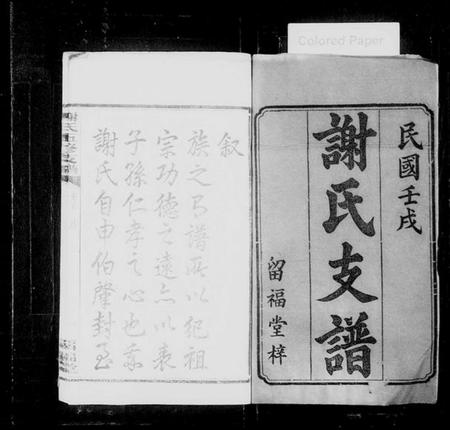 Colored Paper
民國壬戌
謝氏支譜
留福堂梓
叙
族之有譜所以紀祖
宗功德之遠亦以表
子孫仁孝之心也我
謝氏自申伯肇封至